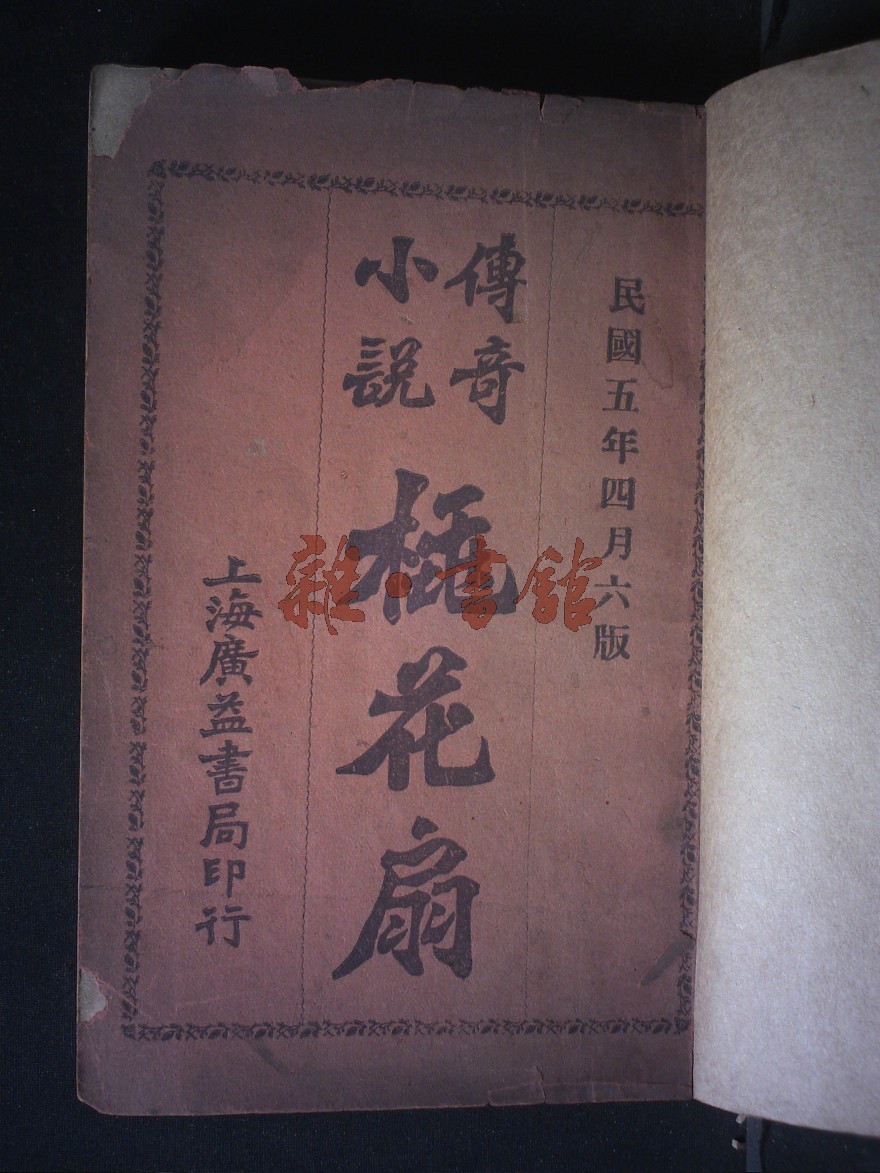 民國五年四月六版
傳奇
小說
桃花扇
上海廣益書局印行
雜·書館